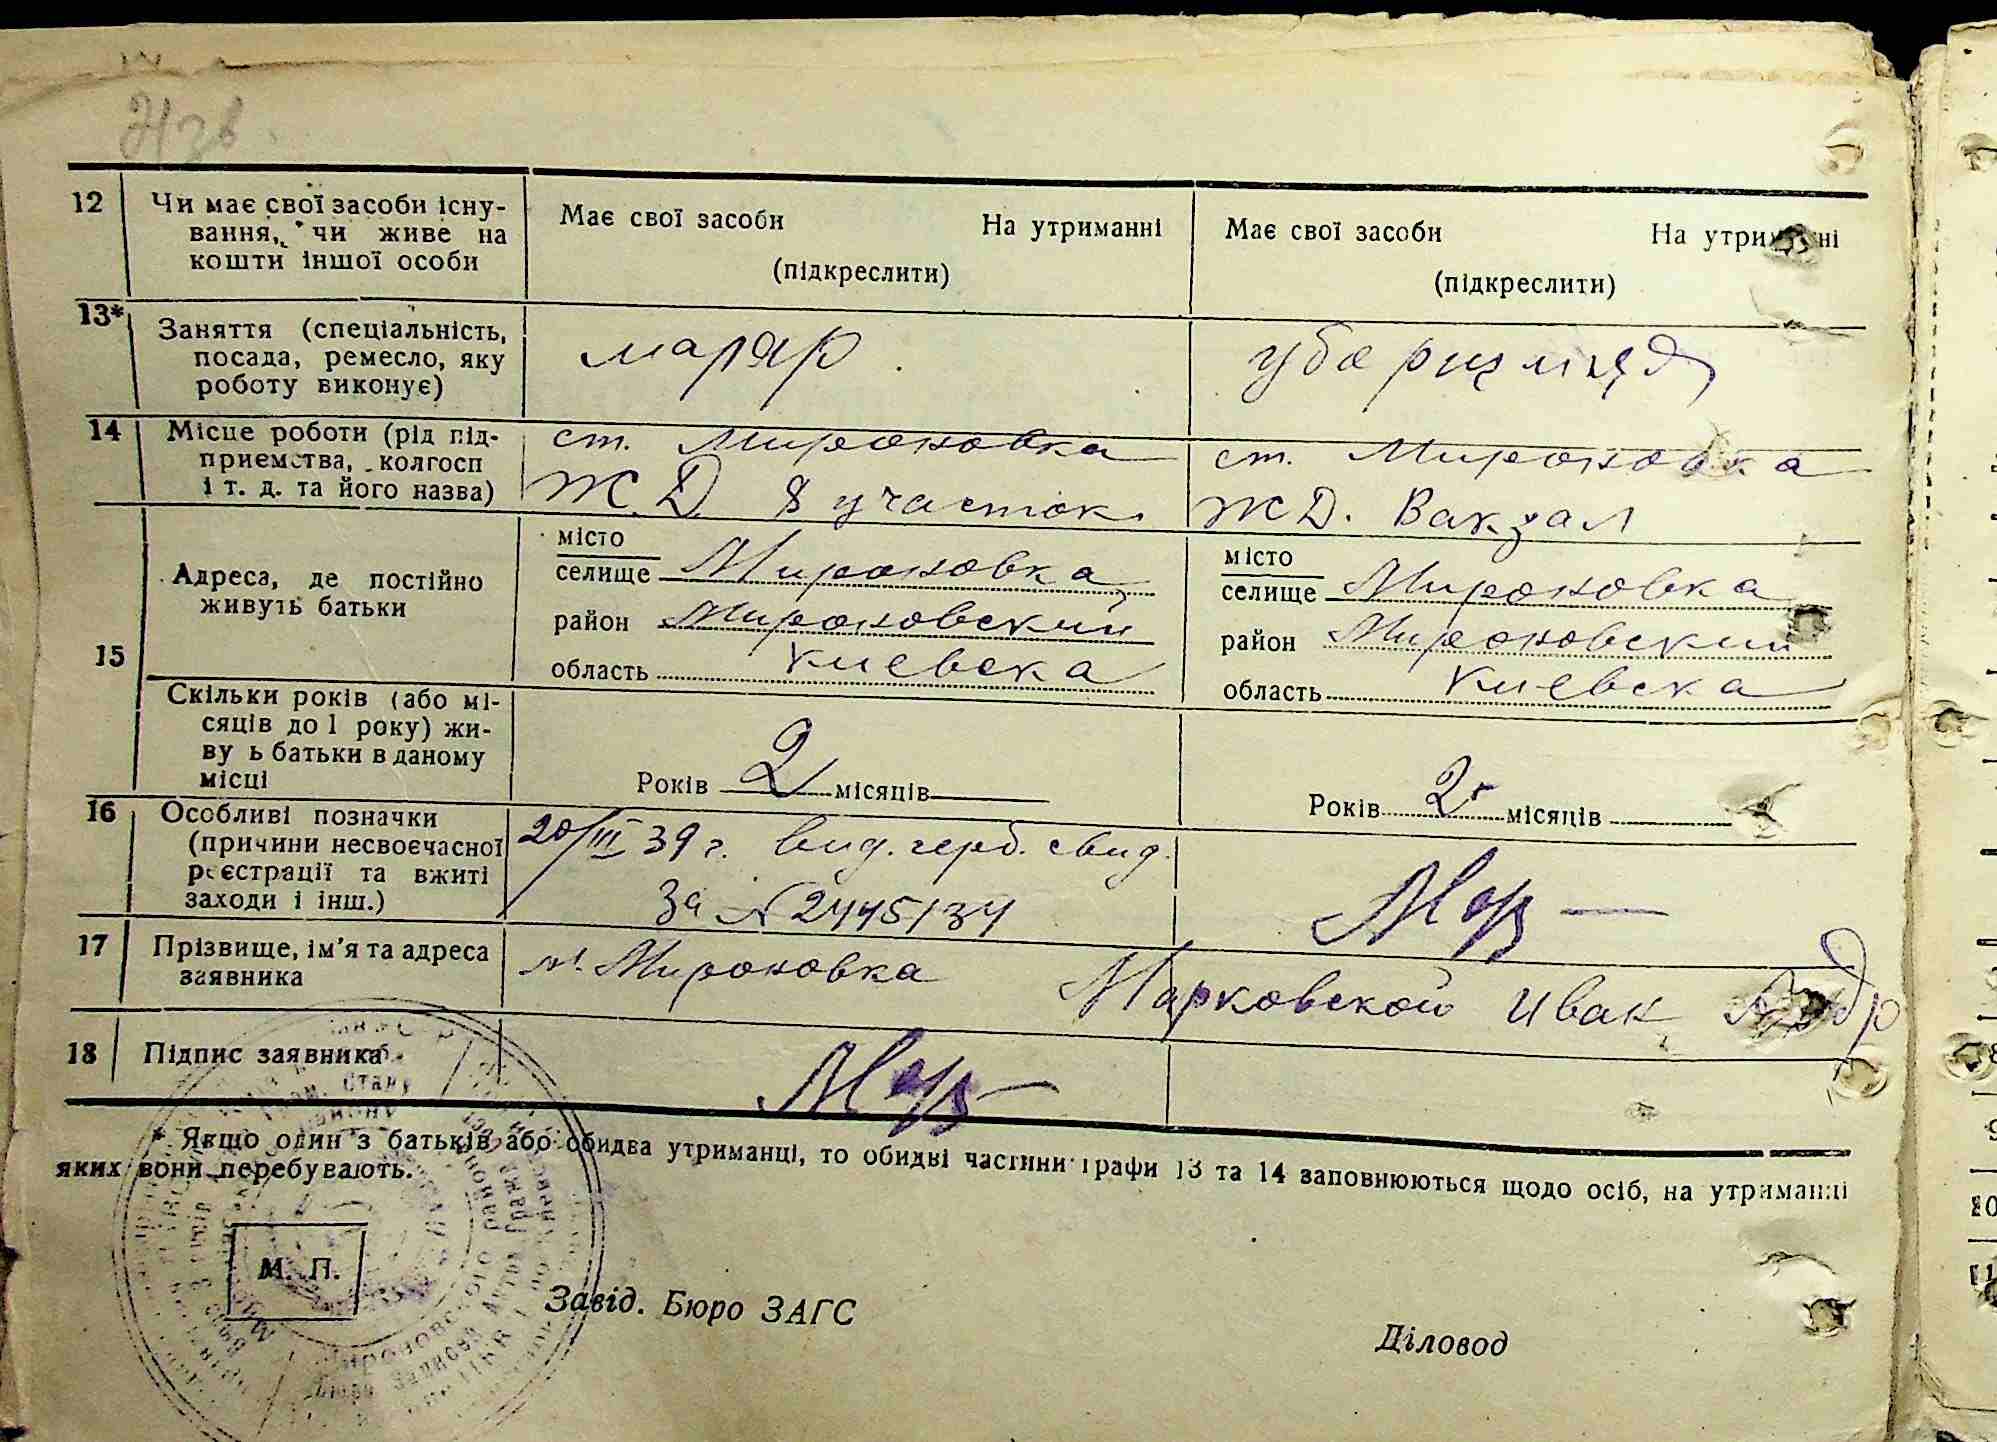 12 Чи має свої засоби існу-
вання, чи живе на
кошти іншої особи
Має свої засоби На утриманні
(підкреслити)
Має свої засоби
(підкреслити)
13* Заняття (спеціальність,
посада, ремесло, яку
роботу виконує)
маляр
14 Місце роботи (рід під-
приємства, колгосп
і т. д. та його назва)
ст. Мироновка
Ж.Д. 8 участок
ст. Мироновка
Ж Д. Вакзал
15 Адреса, де постійно
живуть батьки
місто
селище Мироновка
район Мироновский
область Киевска
місто
селище Мироновка
район Мироновский
область Киевска
Скільки років (або мі-
сяців до 1 року) жи-
ву ь батьки в даному
місці
Років 2 місяців
Років 2 місяців
16 Особливі позначки
(причини несвоєчасної
реєстрації та вжиті
заходи і інш.)
20/III 39 г. вид. герб. свид.
За N 2445134
Мар
17 Прізвище, ім'я та адреса
заявника
м. Мироновка Марковской Иван Андр
18 Підпис заявника
Мар
* Якщо один з батьків або обидва утриманці, то обидві частини графи 13 та 14 заповнюються щодо осіб, на утриманні
яких вони перебувають.
М. П.
Завід. Бюро ЗАГС
Діловод